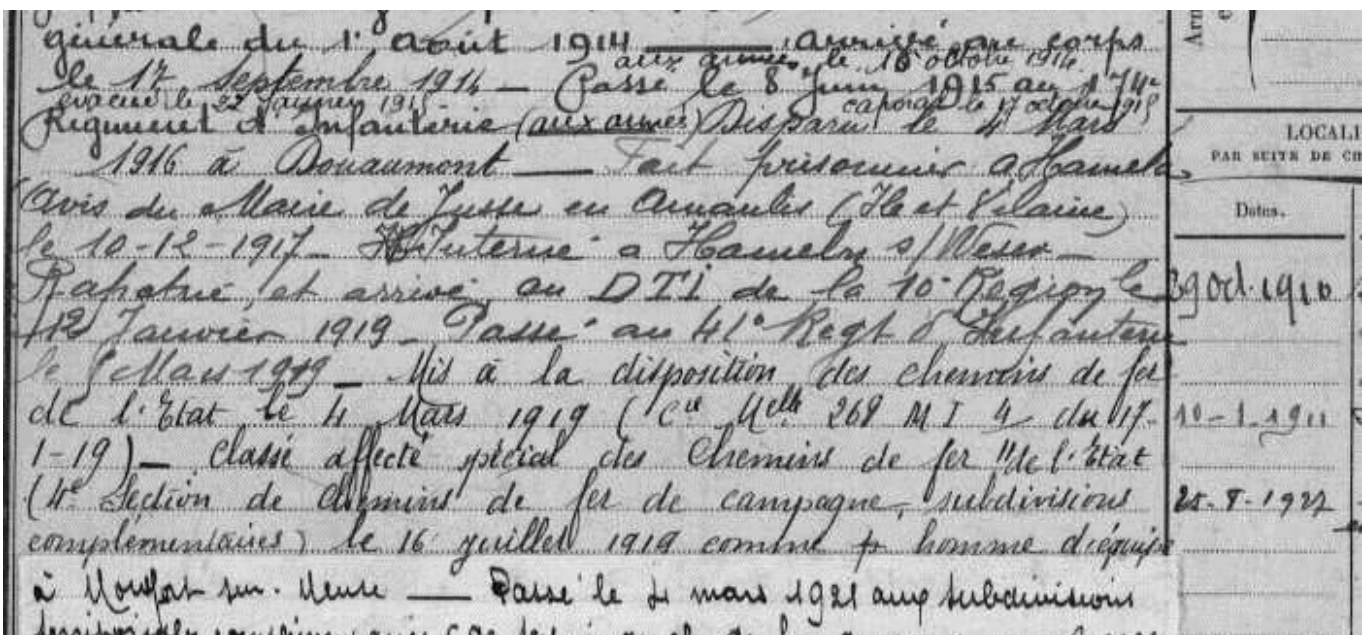 générale du 1er août 1914 — arrivé au corps
aux armées le 15 octobre 1914
le 17 Septembre 1914 — Passé le 8 Juin 1915 au 174e
évacué le 22 Janvier 1915 caporal le 17 octobre 1915
Régiment d'Infanterie (aux armées) Disparu le 4 Mars
1916 à Douaumont — Fait prisonnier à Hameln
(Avis du Maire de en (Ille et Vilaine)
le 10-12-1917 — Interné à Hameln s/Weser —
Rapatrié et arrivé au DTI de la 10e Région le
12 Janvier 1919 — Passé au 41e Regt d'Infanterie
le Mars 1919 — Mis à la disposition des chemins de fer
de l'Etat le 4 Mars 1919 (Cre Melle 268 M I 4 du 17-
1-19) — Classé affecté spécial des Chemins de fer de l'Etat
(4e Section de Chemins de fer de campagne, subdivisions
complémentaires) le 16 juillet 1919 comme homme d'équipe
à sur — Passé le mars 1921 aux subdivisions
LOCALI
PAR SUITE DE CH
Dates.
10-1-1911